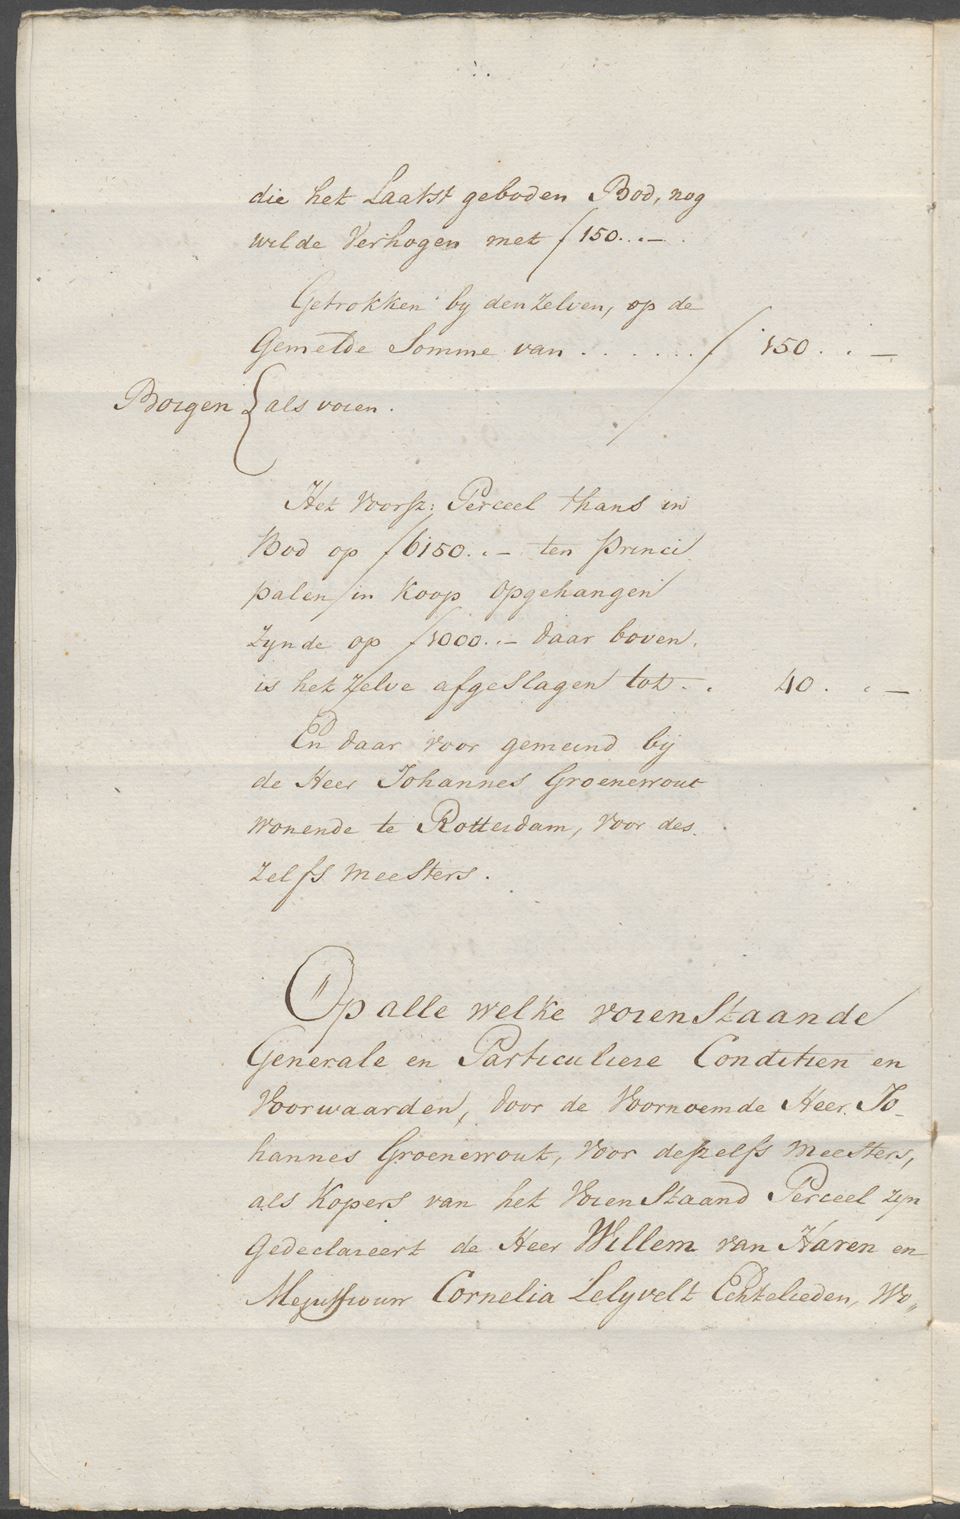 die het Laatst geboden Bod, nog
wilde Verhogen met ƒ 150 . . –
Getrokken by denzelven, op de
Gemelde Somme van . . . . . . ƒ 150 . . –
Borgen { als voren .
Het voorsz: Perceel thans in
Bod op ƒ 6150 . . – ten Princi
palen / in Koop opgehangen
Zynde op ƒ 1000 . . – daar boven,
is het Zelve afgeslagen tot . . 40 . . –
En daar voor gemeind bij
de Heer Johannes Groenewout
wonende te Rotterdam, voor des
Zelfs Meesters .
Op alle welke voren Staande
Generale en Particuliere Conditien en
Voorwaarden, door de Voornoemde Heer Jo-
hannes Groenewout, voor deszelfs Meesters,
als Kopers van het voren Staand Perceel zyn
Gedeclareert de Heer Willem van Haren en
Mejuffrouw Cornelia Lelyvelt Echtelieden, Wo„